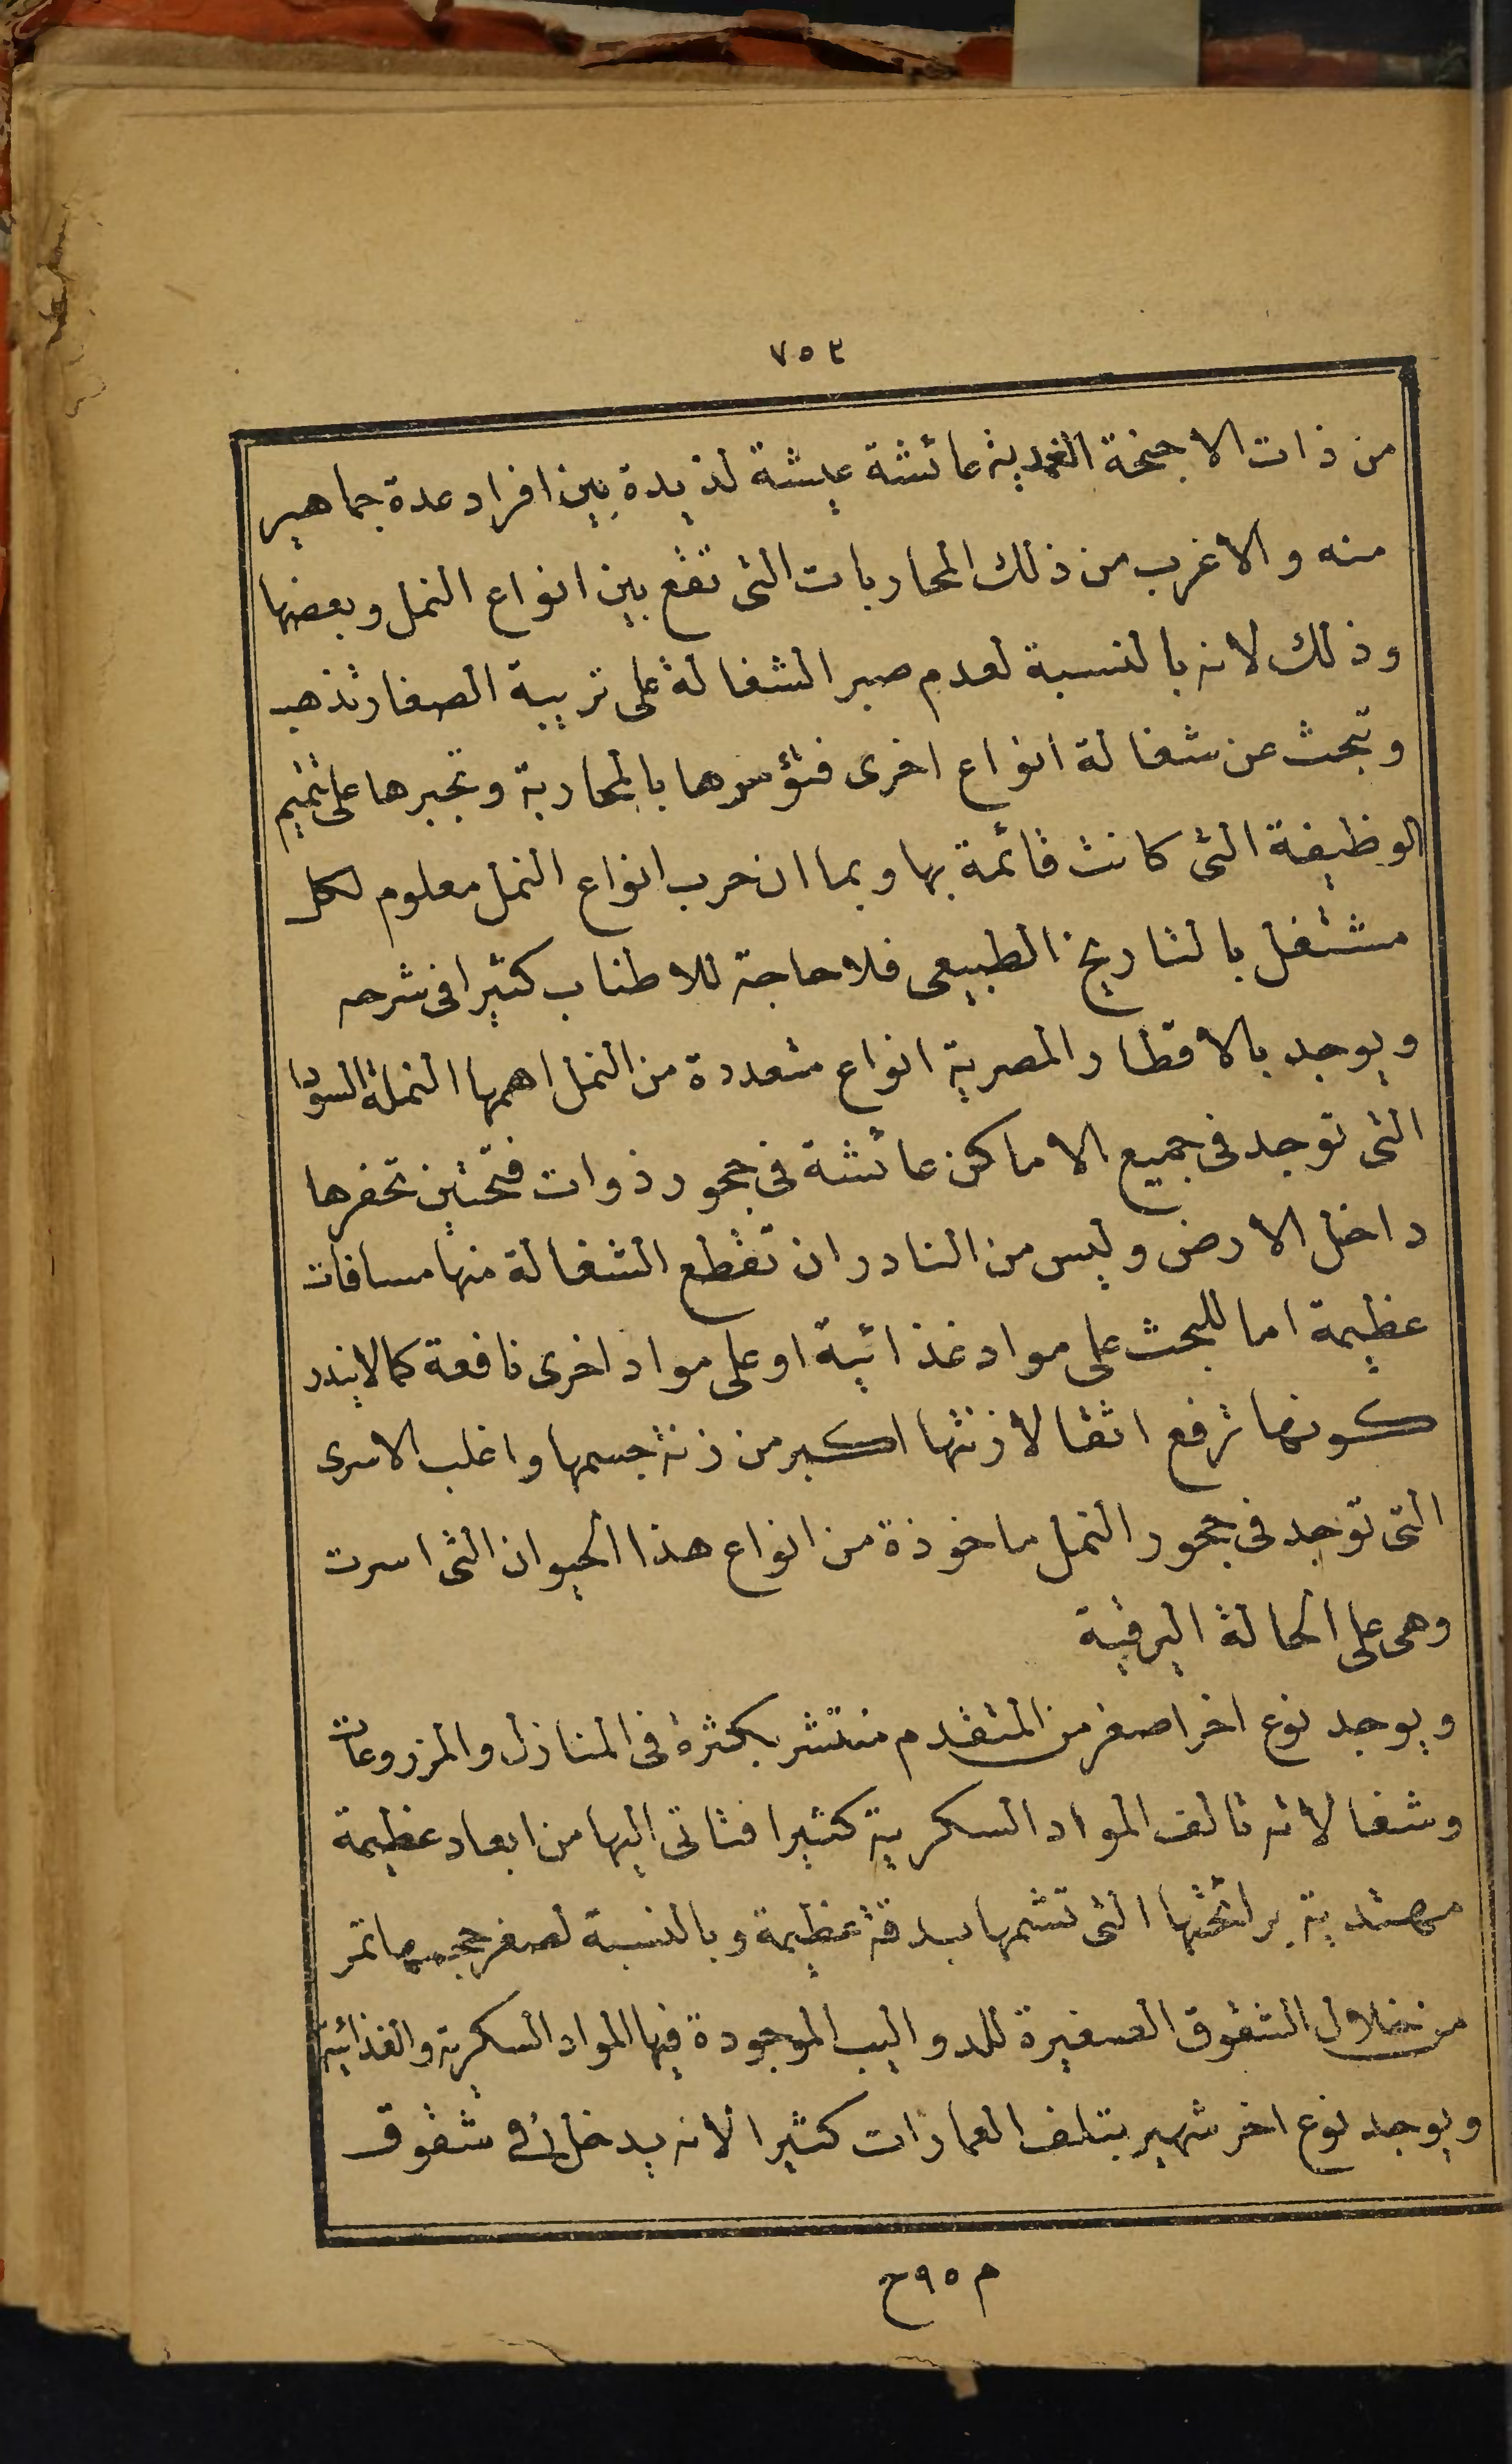 ٧٥٣
من ذات الاجنحة الغمدية عائشة عيشة لذيدة بين افراد عدة جماهير
منه والاغرب من ذلك المحاربات التى تقع بين انواع النمل وبعضها
وذلك لانه بالنسبة لعدم صبر الشغالة على تربية الصغار تذهب
وتبحث عن شغالة انواع اخرى فتؤسرها بالمحاربة وتجبرها على تتميم
الوظيفة التى كانت قائمة بها وبما ان حرب انواع النمل معلوم لكل
مشتغل بالتاريخ الطبيعى فلا حاجة للاطناب كثيرا فى شرحه
ويوجد بالاقطار المصرية انواع متعددة من النمل اهمها النملة السودا
التى توجد فى جميع الاماكن عائشة فى جحور ذوات فتحتين تحفرها
داخل الارض وليس من النادر ان تقطع الشغالة منها مسافات
عظيمة اما للبحث على مواد غذائية او على مواد اخرى نافعة كما لا يندر
كونها ترفع اثقالا زنتها اكبر من زنة جسمها واغلب الاسرى
التى توجد فى جحور النمل ماخوذة من انواع هذا الحيوان التى اسرت
وهى على الحالة اليرقية
ويوجد نوع اخر اصغر من المتقدم منتشر بكثرة فى المنازل والمزروعات
وشغالاته تالف المواد السكرية كثيرا فتاتى اليها من ابعاد عظيمة
مهتدية برائحتها التى تشمها بدقة عظيمة وبالنسبة لصغر حجمها تمر
من خلال الشقوق الصغيرة للدواليب الموجودة فيها المواد السكرية والغذائية
ويوجد نوع اخر شهير بتلف العمارات كثيرا لانه يدخل فى شقوق
م ٩٥ ح